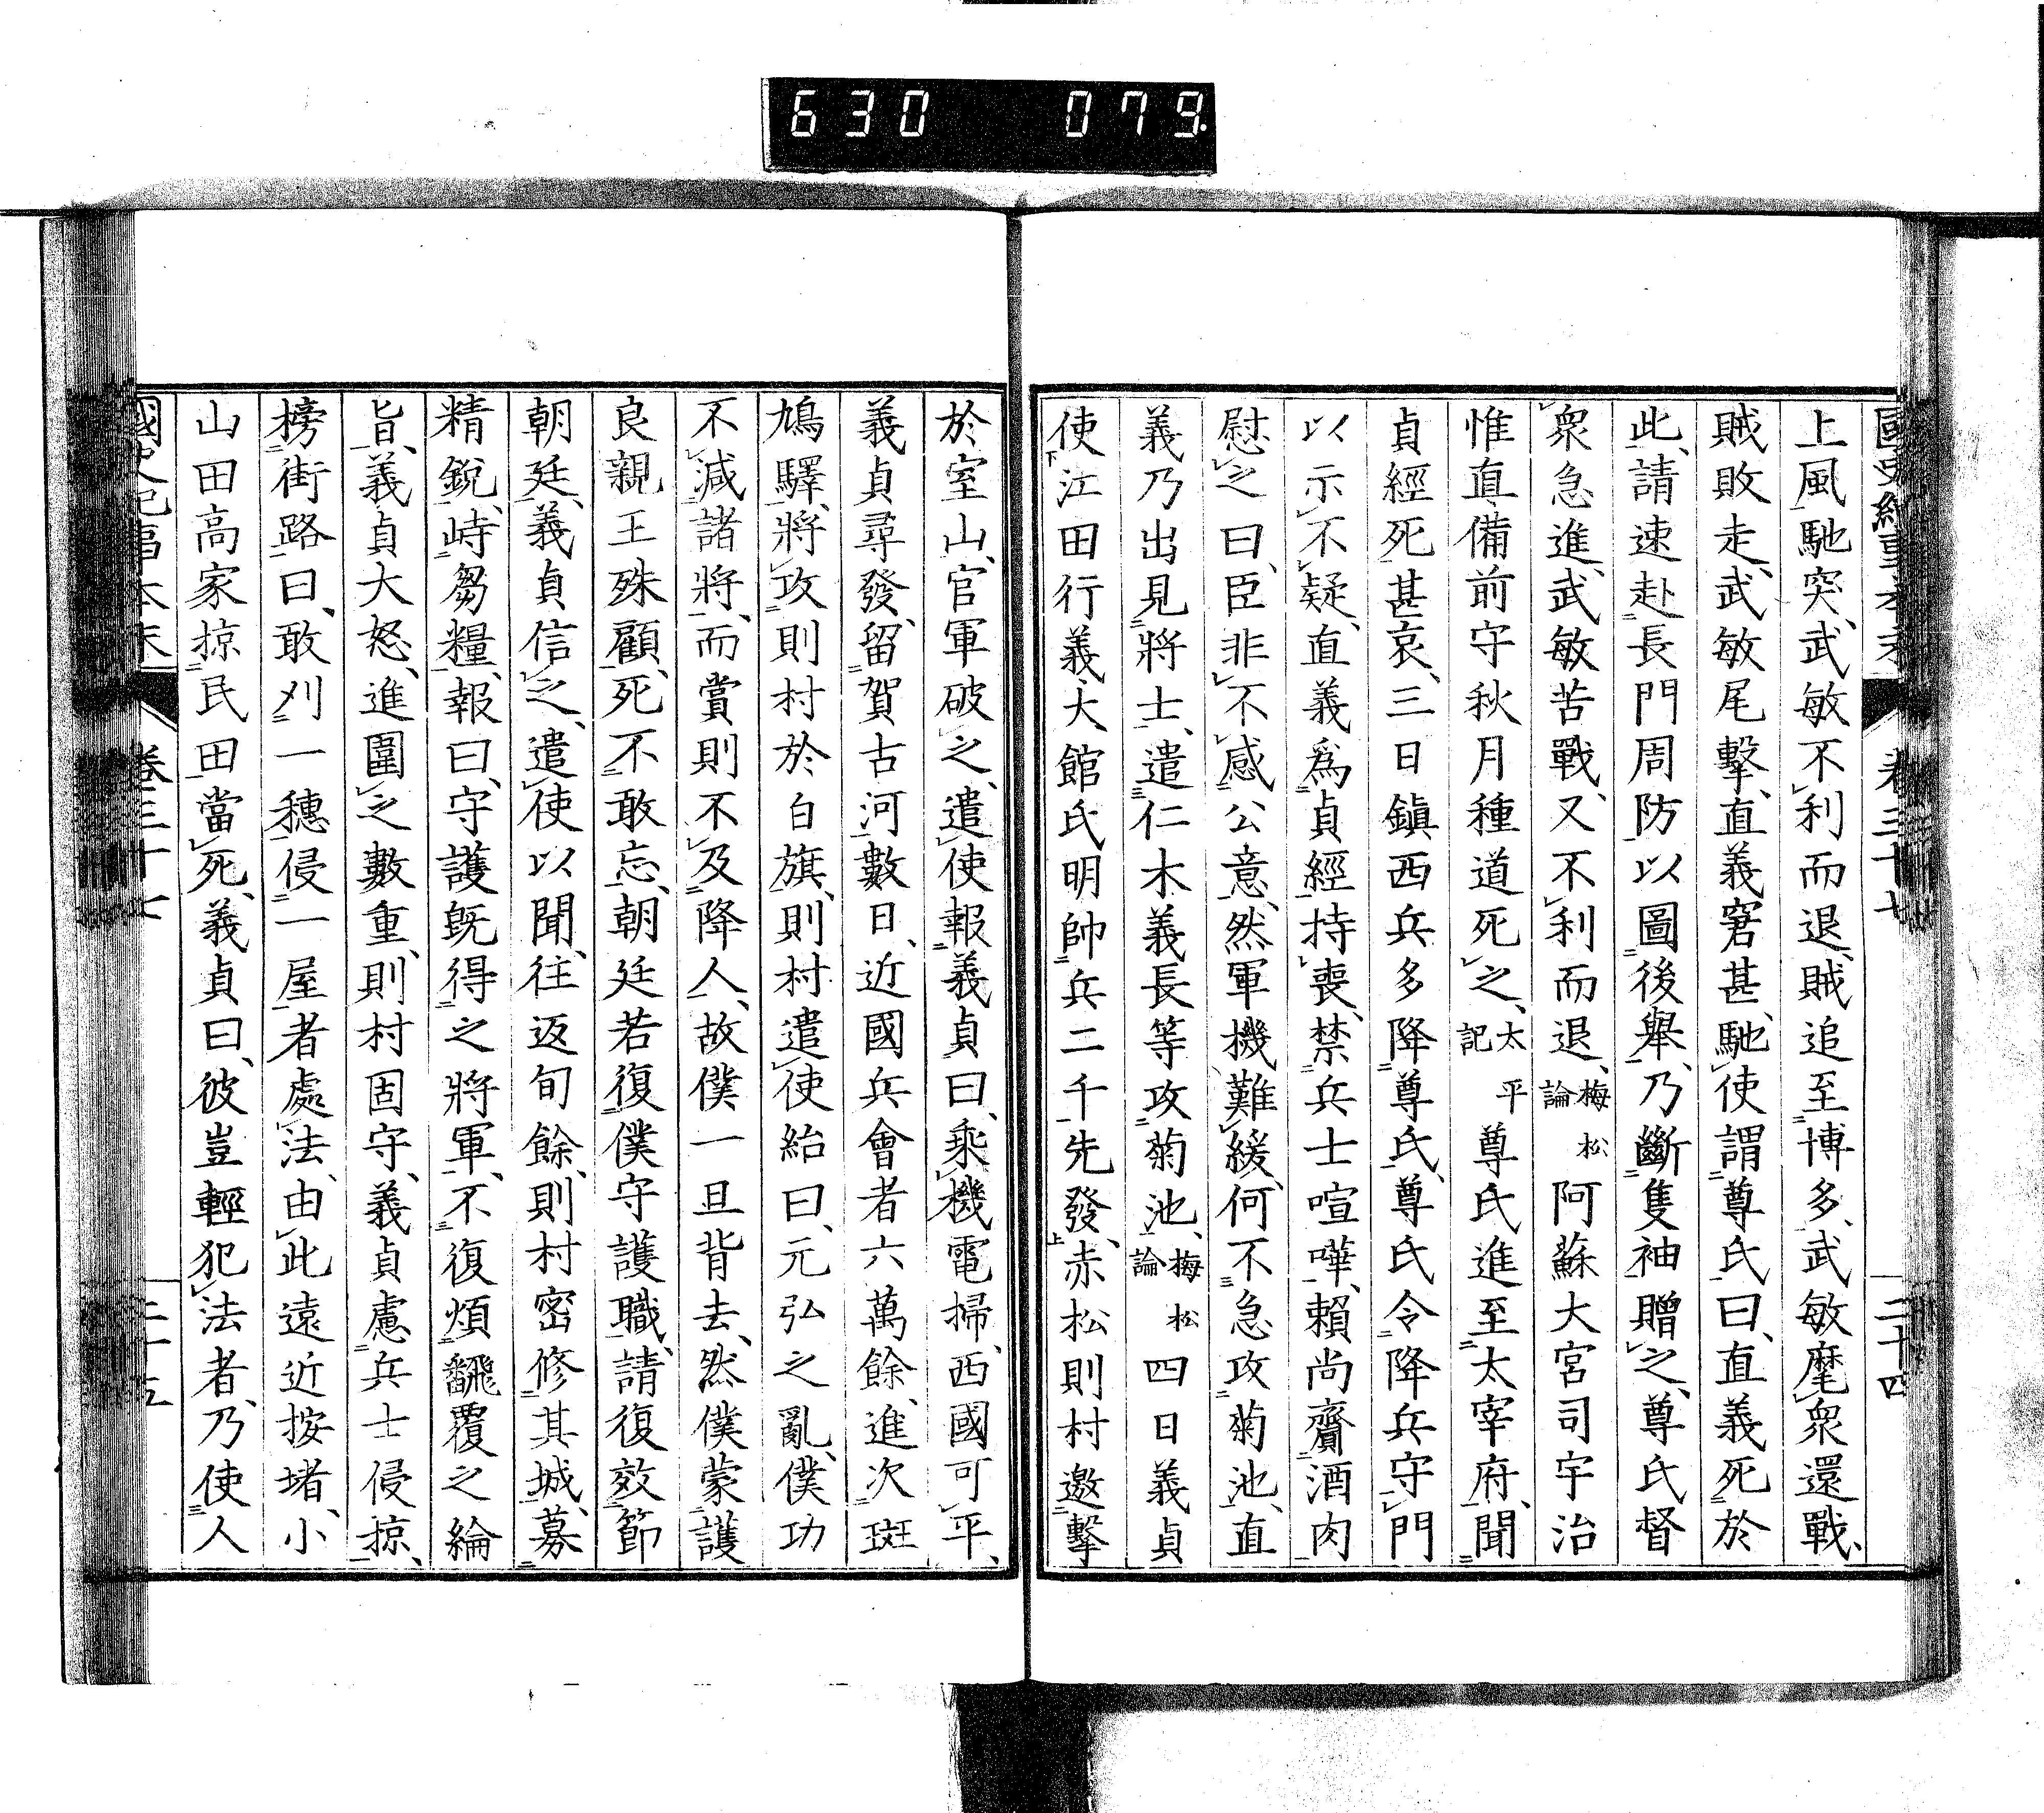 630 079
國史紀事本末 卷三十七 二十四
上風馳突、武敏不利而退、賊追至博多、武敏麾衆還戰、
賊敗走、武敏尾擊、直義窘甚、馳使謂尊氏曰、直義死於
此、請速赴長門周防以圖後擧、乃斷隻袖贈之、尊氏督
衆急進、武敏苦戰、又不利而退、梅松論 阿蘇大宮司宇治
惟直備前守秋月種道死之、太平記 尊氏進至太宰府、聞
貞經死甚哀、三日鎭西兵多降尊氏、尊氏令降兵守門
以示不疑、直義爲貞經持喪、禁兵士喧嘩、賴尚齎酒肉
慰之曰、臣非不感公意、然軍機難緩、何不急攻菊池、直
義乃出見將士、遣仁木義長等攻菊池、梅松論 四日義貞
使江田行義大館氏明帥兵二千先發、赤松則村邀擊
於室山、官軍破之、遣使報義貞曰、乘機電掃、西國可平、
義貞尋發、留賀古河數日、近國兵會者六萬餘、進次斑
鳩驛、將攻則村於白旗、則村遣使紿曰、元弘之亂、僕功
不減諸將、而賞則不及降人、故僕一旦背去、然僕蒙護
良親王殊顧、死不敢忘、朝廷若復僕守護職、請復效節
朝廷、義貞信之、遣使以聞、往返旬餘、則村密修其城、募
精銳、峙芻糧、報曰、守護旣得之將軍、不復煩飜覆之綸
旨、義貞大怒、進圍之數重、則村固守、義貞慮兵士侵掠、
榜街路曰、敢刈一穗侵一屋者處法、由此遠近按堵、小
山田高家掠民田當死、義貞曰、彼豈輕犯法者、乃使人
國史紀事本末 卷三十七 二十五